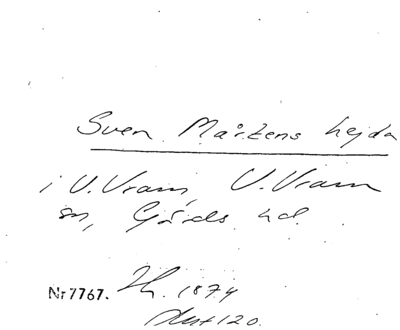 Sven Mårtens hejda
i V. Vram, V. Vram
sn, Gärds hd.
Nr 7767. 1874
120.